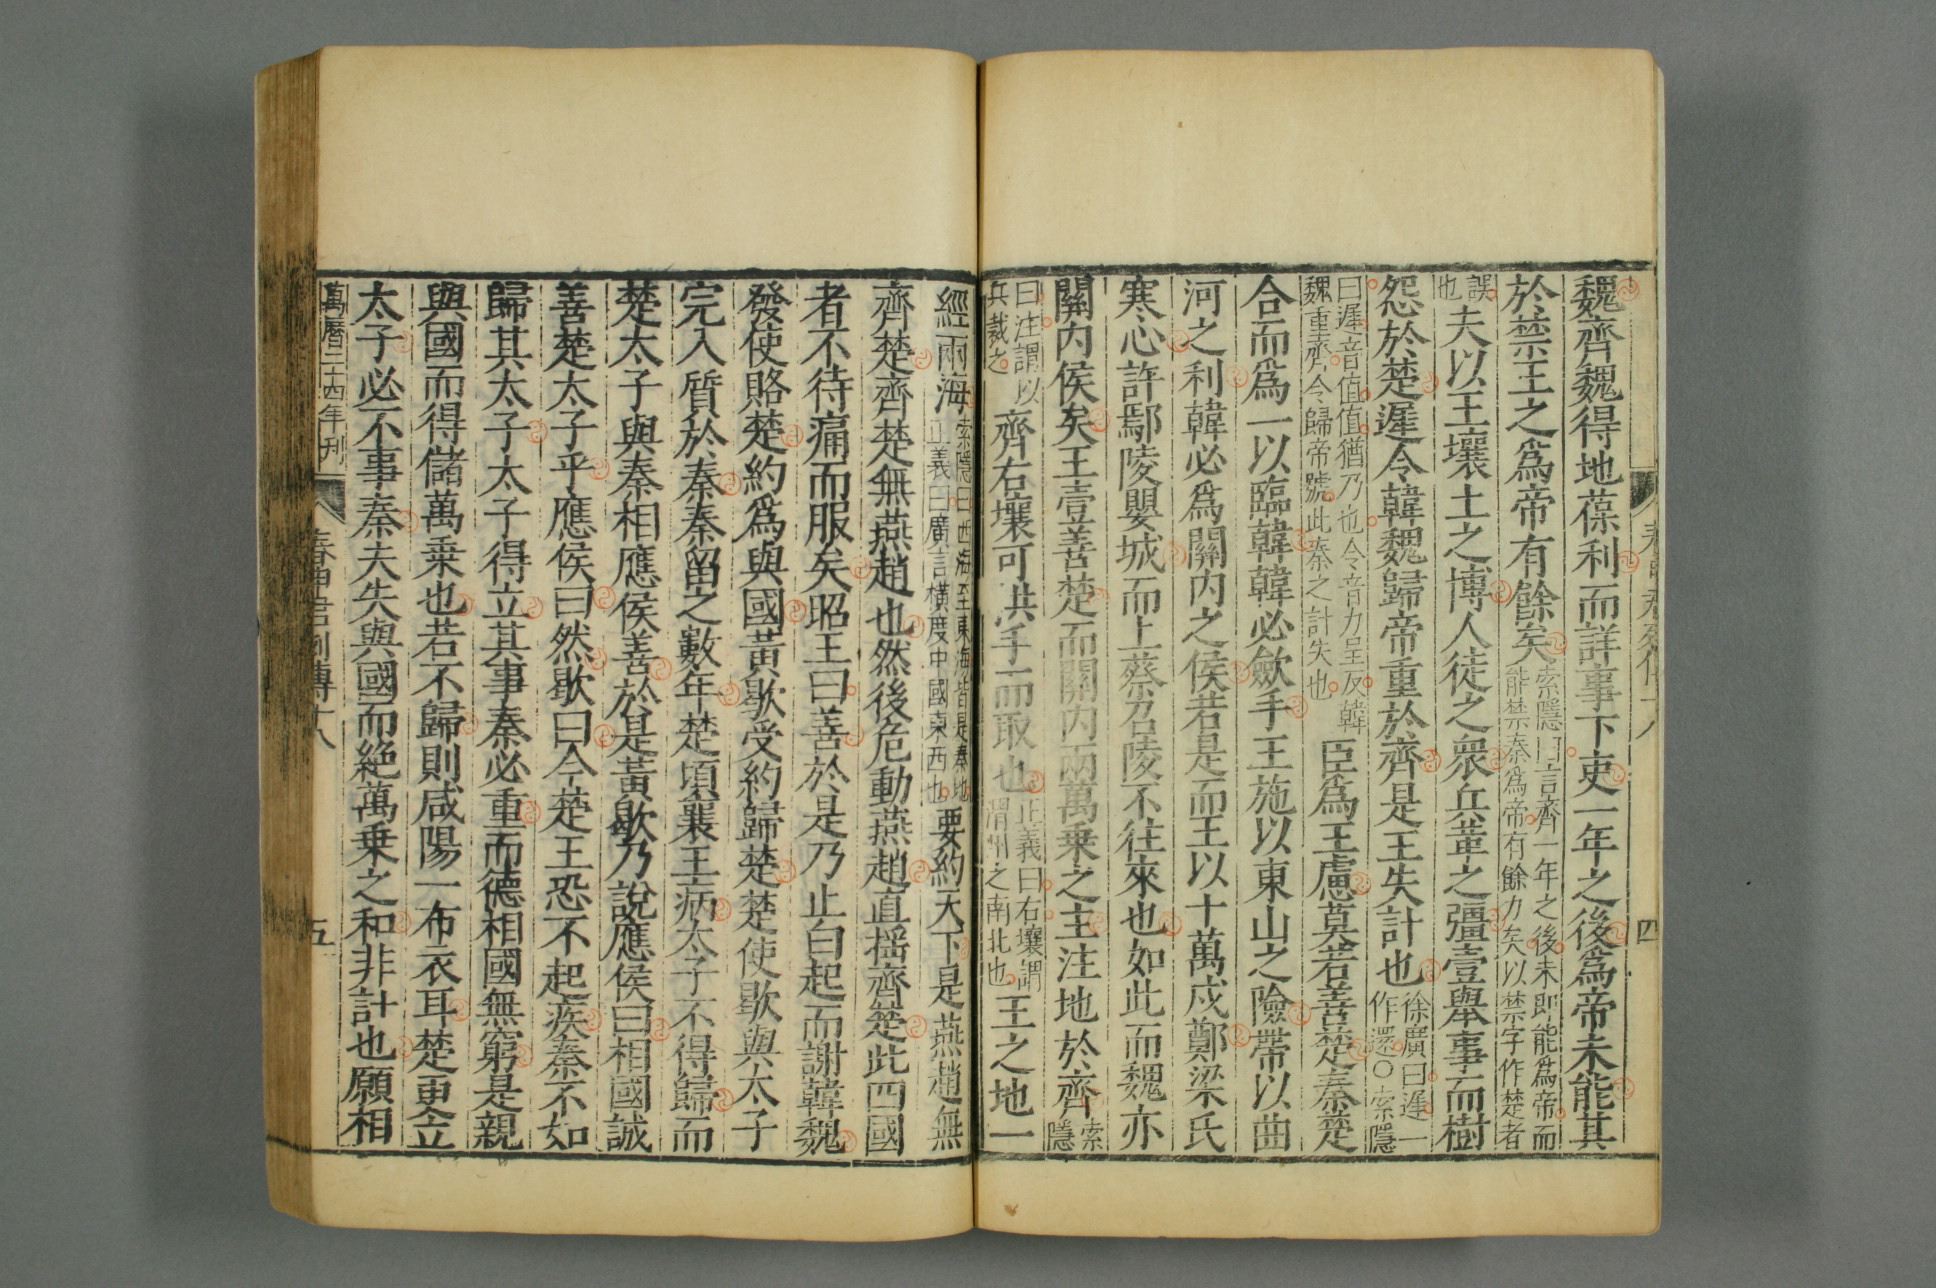 魏齊魏得地葆利而詳事下吏一年之後爲帝未能其
於禁王之爲帝有餘矣索隱曰言齊一年之後未即能爲帝而能禁秦爲帝有餘力矣以禁字作楚者
誤也夫以王壤土之博人徒之衆兵革之彊壹舉事而樹
怨於楚遲令韓魏歸帝重於齊是王失計也徐廣曰遲一作還〇索隱
曰遲音值值猶乃也令音力呈反韓魏重齊令歸帝號此秦之計失也臣爲王慮莫若善楚秦楚
合而爲一以臨韓韓必斂手王施以東山之險帶以曲
河之利韓必爲關內之侯若是而王以十萬戍鄭梁氏
寒心許鄢陵嬰城而上蔡召陵不往來也如此而魏亦
關內侯矣王壹善楚而關內兩萬乘之主注地於齊索隱
曰注謂以兵裁之齊右壤可拱手而取也正義曰右壤謂渭州之南北也王之地一
經兩海索隱曰西海至東海皆是秦地正義曰廣言橫度中國東西也要約天下是燕趙無
齊楚齊楚無燕趙也然後危動燕趙直搖齊楚此四國
者不待痛而服矣昭王曰善於是乃止白起而謝韓魏
發使賂楚約爲與國黃歇受約歸楚楚使歇與太子
完入質於秦秦留之數年楚頃襄王病太子不得歸而
楚太子與秦相應侯善於是黃歇乃說應侯曰相國誠
善楚太子乎應侯曰然歇曰今楚王恐不起疾秦不如
歸其太子太子得立其事秦必重而德相國無窮是親
與國而得儲萬乘也若不歸則咸陽一布衣耳楚更立
太子必不事秦夫失與國而絕萬乘之和非計也願相
萬曆二十四年刊
春申君列傳十八
五
四